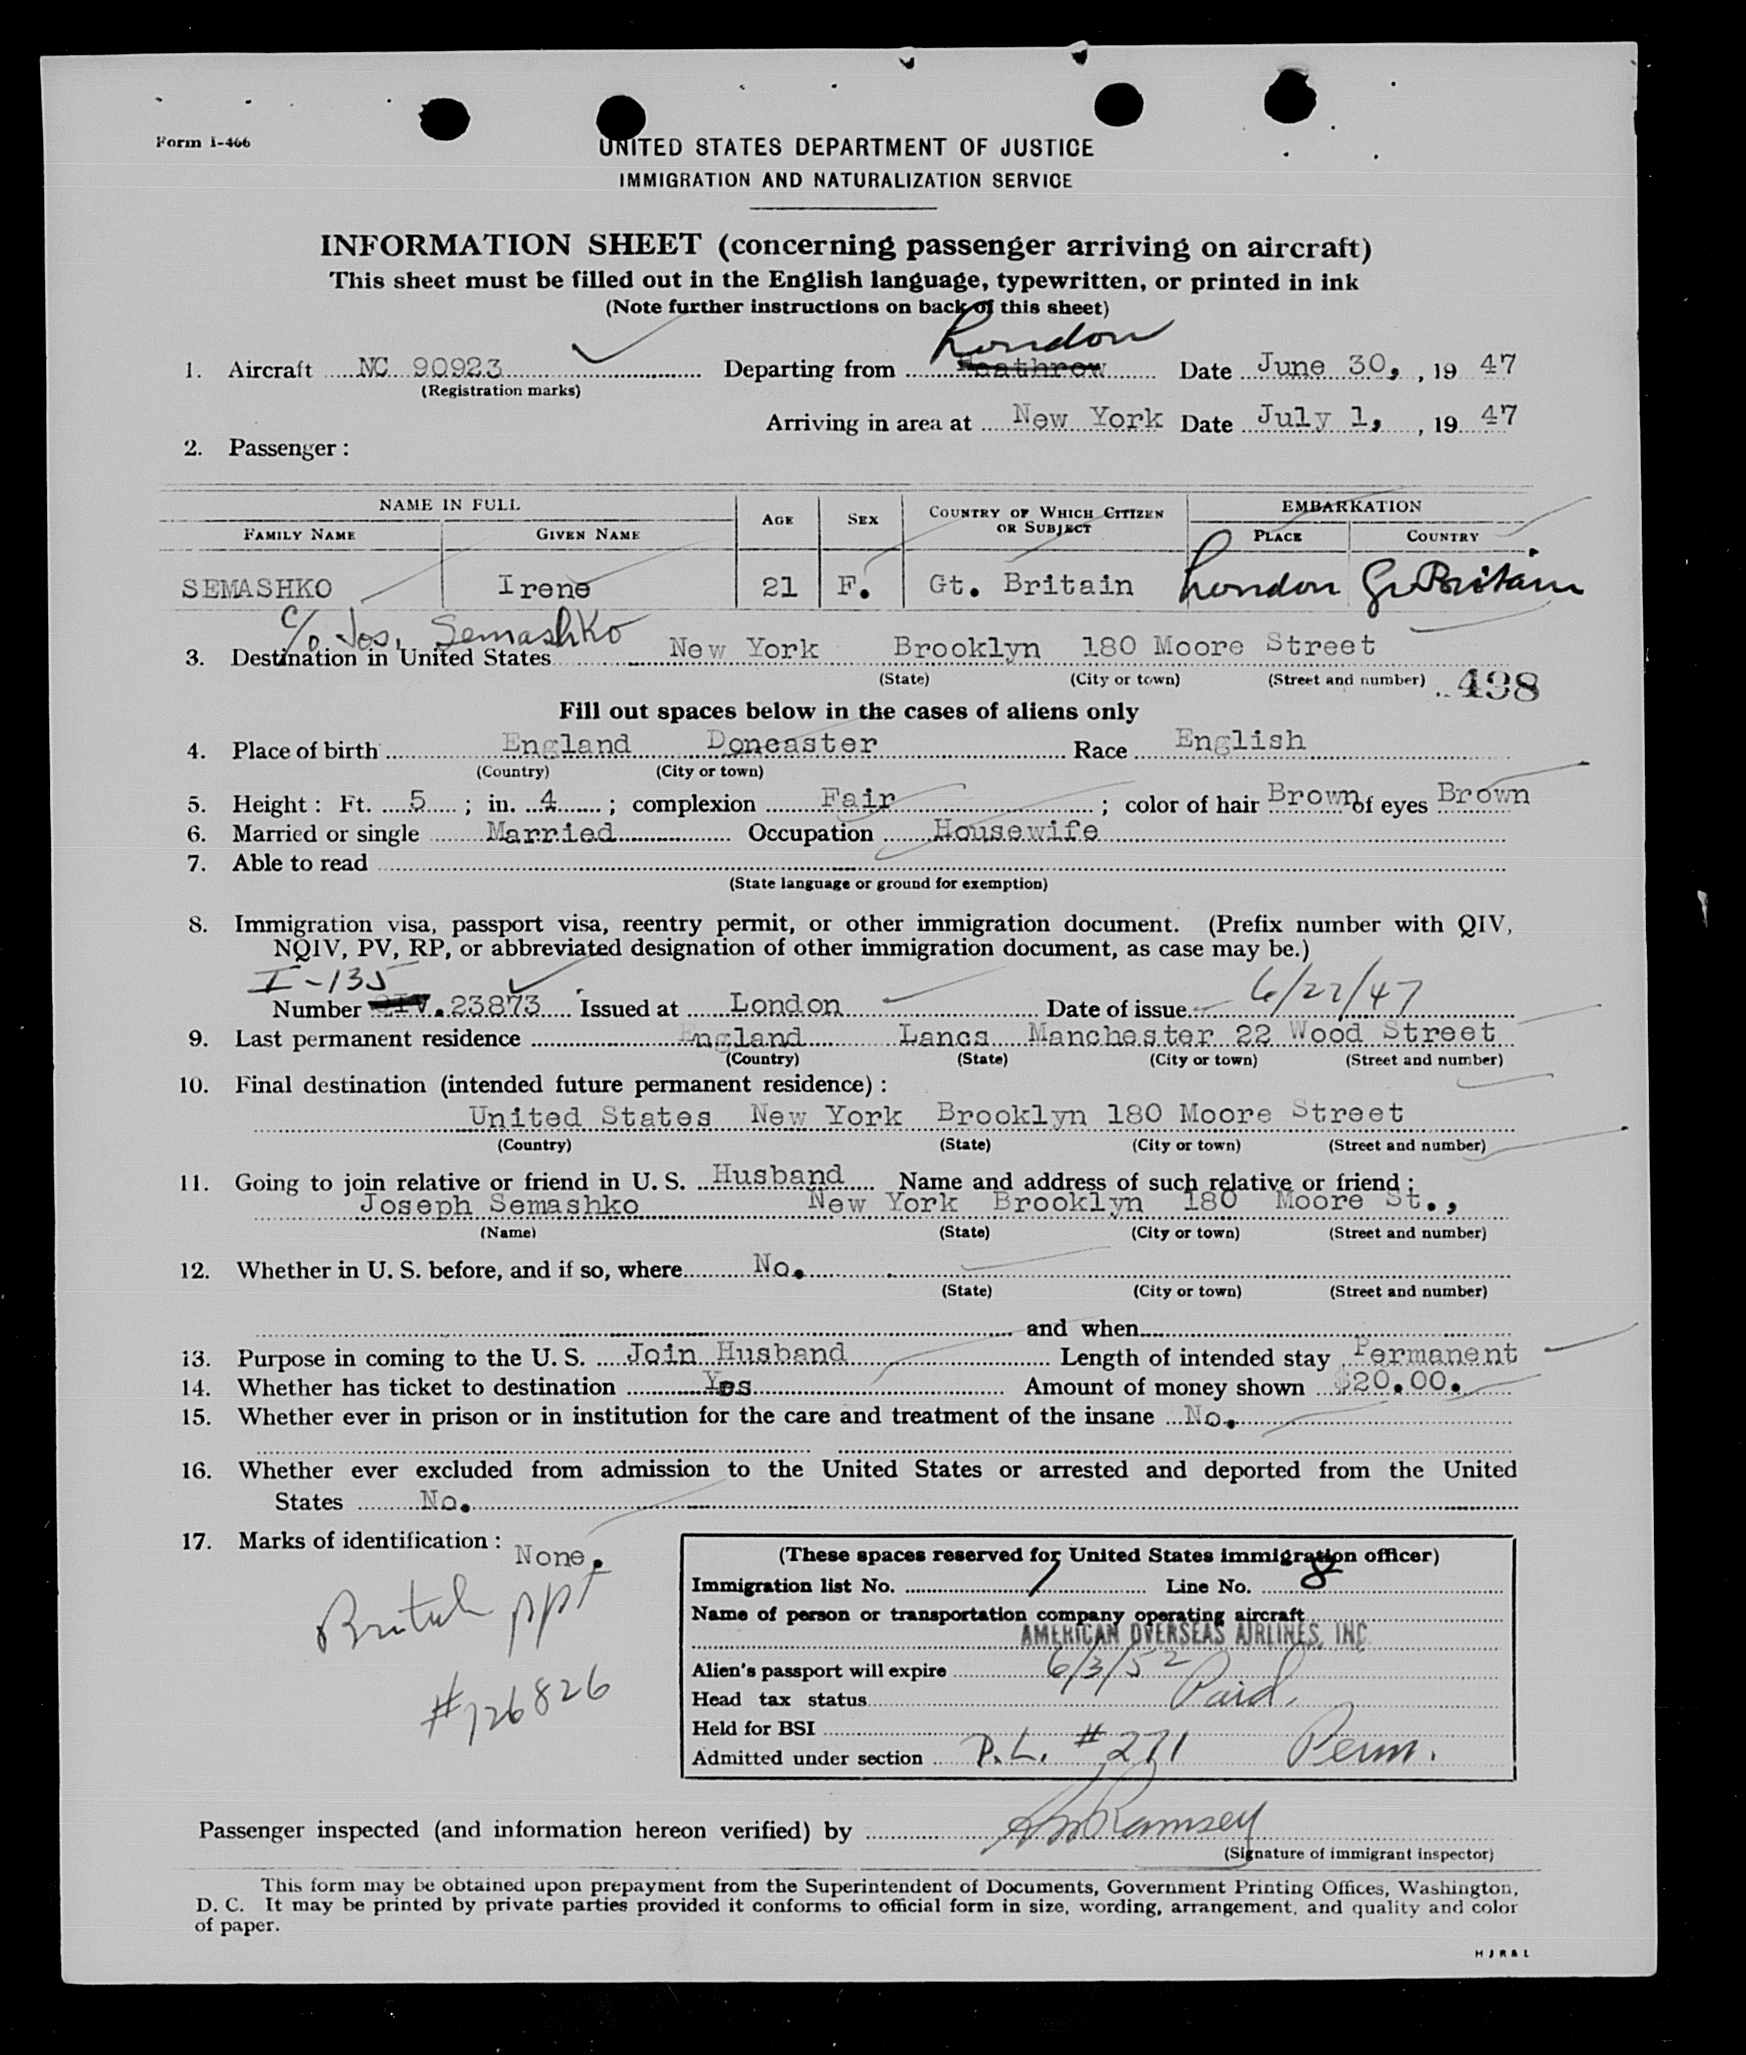 Form I-466
UNITED STATES DEPARTMENT OF JUSTICE
IMMIGRATION AND NATURALIZATION SERVICE
INFORMATION SHEET (concerning passenger arriving on aircraft)
This sheet must be filled out in the English language, typewritten, or printed in ink
(Note further instructions on back of this sheet)
London
1. Aircraft NC 90923 Departing from Heathrow Date June 30, , 19 47
(Registration marks)
Arriving in area at New York Date July 1, , 19 47
2. Passenger :
NAME IN FULL AGE SEX COUNTRY OF WHICH CITIZEN OR SUBJECT EMBARKATION
FAMILY NAME GIVEN NAME PLACE COUNTRY
SEMASHKO Irene 21 F. Gt. Britain London Gr Britain
c/o Jos. Semashko
3. Destination in United States New York Brooklyn 180 Moore Street
(State) (City or town) (Street and number) 498
Fill out spaces below in the cases of aliens only
4. Place of birth England Doncaster Race English
(Country) (City or town)
5. Height : Ft. 5 ; in. 4 ; complexion Fair ; color of hair Brown of eyes Brown
6. Married or single Married Occupation Housewife
7. Able to read
(State language or ground for exemption)
8. Immigration visa, passport visa, reentry permit, or other immigration document. (Prefix number with QIV,
NQIV, PV, RP, or abbreviated designation of other immigration document, as case may be.)
I-135
Number QIV. 23873 Issued at London Date of issue 6/27/47
9. Last permanent residence England Lancs Manchester 22 Wood Street
(Country) (State) (City or town) (Street and number)
10. Final destination (intended future permanent residence) :
United States New York Brooklyn 180 Moore Street
(Country) (State) (City or town) (Street and number)
11. Going to join relative or friend in U. S. Husband Name and address of such relative or friend :
Joseph Semashko New York Brooklyn 180 Moore St.,
(Name) (State) (City or town) (Street and number)
12. Whether in U. S. before, and if so, where No.
(State) (City or town) (Street and number)
and when
13. Purpose in coming to the U. S. Join Husband Length of intended stay Permanent
14. Whether has ticket to destination Yes Amount of money shown $20.00.
15. Whether ever in prison or in institution for the care and treatment of the insane No.
16. Whether ever excluded from admission to the United States or arrested and deported from the United
States No.
17. Marks of identification :
None.
British ppt
#726826
(These spaces reserved for United States immigration officer)
Immigration list No. 1 Line No. 8
Name of person or transportation company operating aircraft
AMERICAN OVERSEAS AIRLINES, INC
Alien's passport will expire 6/3/52
Head tax status Paid.
Held for BSI
Admitted under section P.L. #271 Perm.
Passenger inspected (and information hereon verified) by Ramsey
(Signature of immigrant inspector)
This form may be obtained upon prepayment from the Superintendent of Documents, Government Printing Offices, Washington,
D. C. It may be printed by private parties provided it conforms to official form in size, wording, arrangement, and quality and color
of paper.
H J R & L